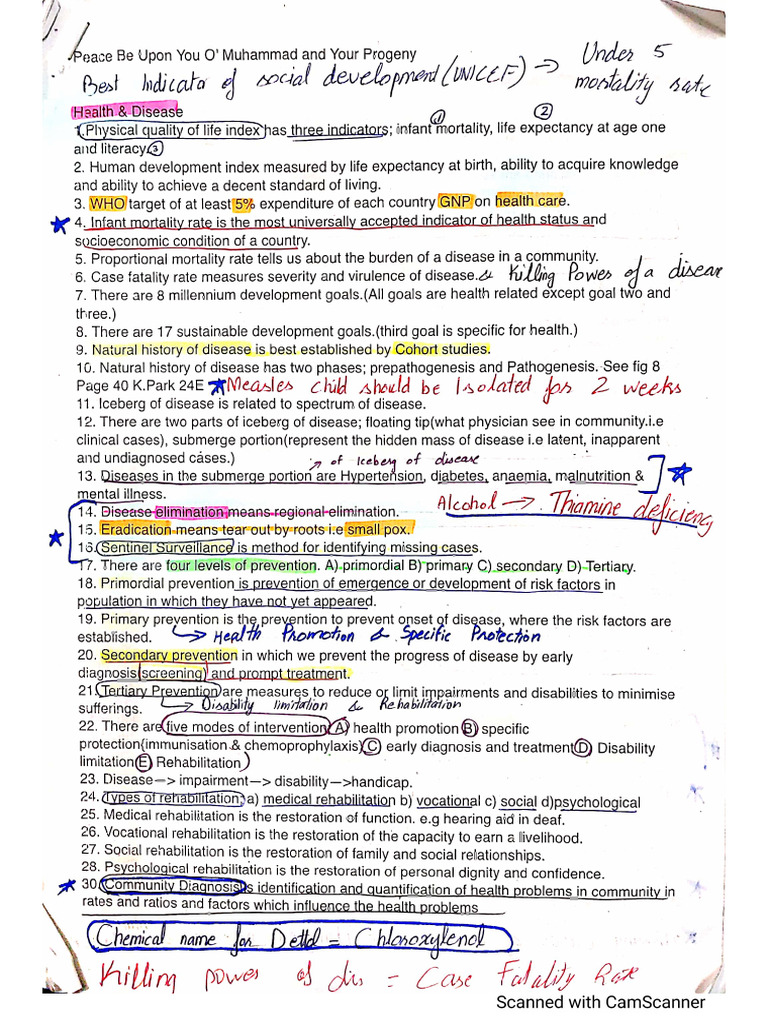 Peace Be Upon You O' Muhammad and Your Progeny
Best Indicator of social development (UNICEF) → Under 5
mortality rate
Health & Disease
1. Physical quality of life index has three indicators; infant mortality, life expectancy at age one
① ②
and literacy ③
2. Human development index measured by life expectancy at birth, ability to acquire knowledge
and ability to achieve a decent standard of living.
3. WHO target of at least 5% expenditure of each country GNP on health care.
4. Infant mortality rate is the most universally accepted indicator of health status and
socioeconomic condition of a country.
5. Proportional mortality rate tells us about the burden of a disease in a community.
6. Case fatality rate measures severity and virulence of disease. & Killing Power of a disease
7. There are 8 millennium development goals.(All goals are health related except goal two and
three.)
8. There are 17 sustainable development goals.(third goal is specific for health.)
9. Natural history of disease is best established by Cohort studies.
10. Natural history of disease has two phases; prepathogenesis and Pathogenesis. See fig 8
Page 40 K.Park 24E ★ Measles child should be Isolated for 2 weeks
11. Iceberg of disease is related to spectrum of disease.
12. There are two parts of iceberg of disease; floating tip(what physician see in community.i.e
clinical cases), submerge portion(represent the hidden mass of disease i.e latent, inapparent
and undiagnosed cases.)
→ of Iceberg of disease
13. Diseases in the submerge portion are Hypertension, diabetes, anaemia, malnutrition &
mental illness.
14. Disease elimination means regional elimination.
Alcohol → Thiamine deficiency
15. Eradication means tear out by roots i.e small pox.
16. Sentinel Surveillance is method for identifying missing cases.
17. There are four levels of prevention. A) primordial B) primary C) secondary D) Tertiary.
18. Primordial prevention is prevention of emergence or development of risk factors in
population in which they have not yet appeared.
19. Primary prevention is the prevention to prevent onset of disease, where the risk factors are
established. → Health Promotion & Specific Protection
20. Secondary prevention in which we prevent the progress of disease by early
diagnosis(screening) and prompt treatment.
21. Tertiary Prevention are measures to reduce or limit impairments and disabilities to minimise
sufferings. → Disability limitation & Rehabilitation
22. There are five modes of intervention A) health promotion B) specific
protection(immunisation & chemoprophylaxis) C) early diagnosis and treatment D) Disability
limitation E) Rehabilitation)
23. Disease—> impairment—> disability—>handicap.
24. Types of rehabilitation; a) medical rehabilitation b) vocational c) social d)psychological
25. Medical rehabilitation is the restoration of function. e.g hearing aid in deaf.
26. Vocational rehabilitation is the restoration of the capacity to earn a livelihood.
27. Social rehabilitation is the restoration of family and social relationships.
28. Psychological rehabilitation is the restoration of personal dignity and confidence.
30. Community Diagnosis is identification and quantification of health problems in community in
rates and ratios and factors which influence the health problems
Chemical name for Dettol = Chloroxylenol
Killing power of dis = Case Fatality Rate
Scanned with CamScanner